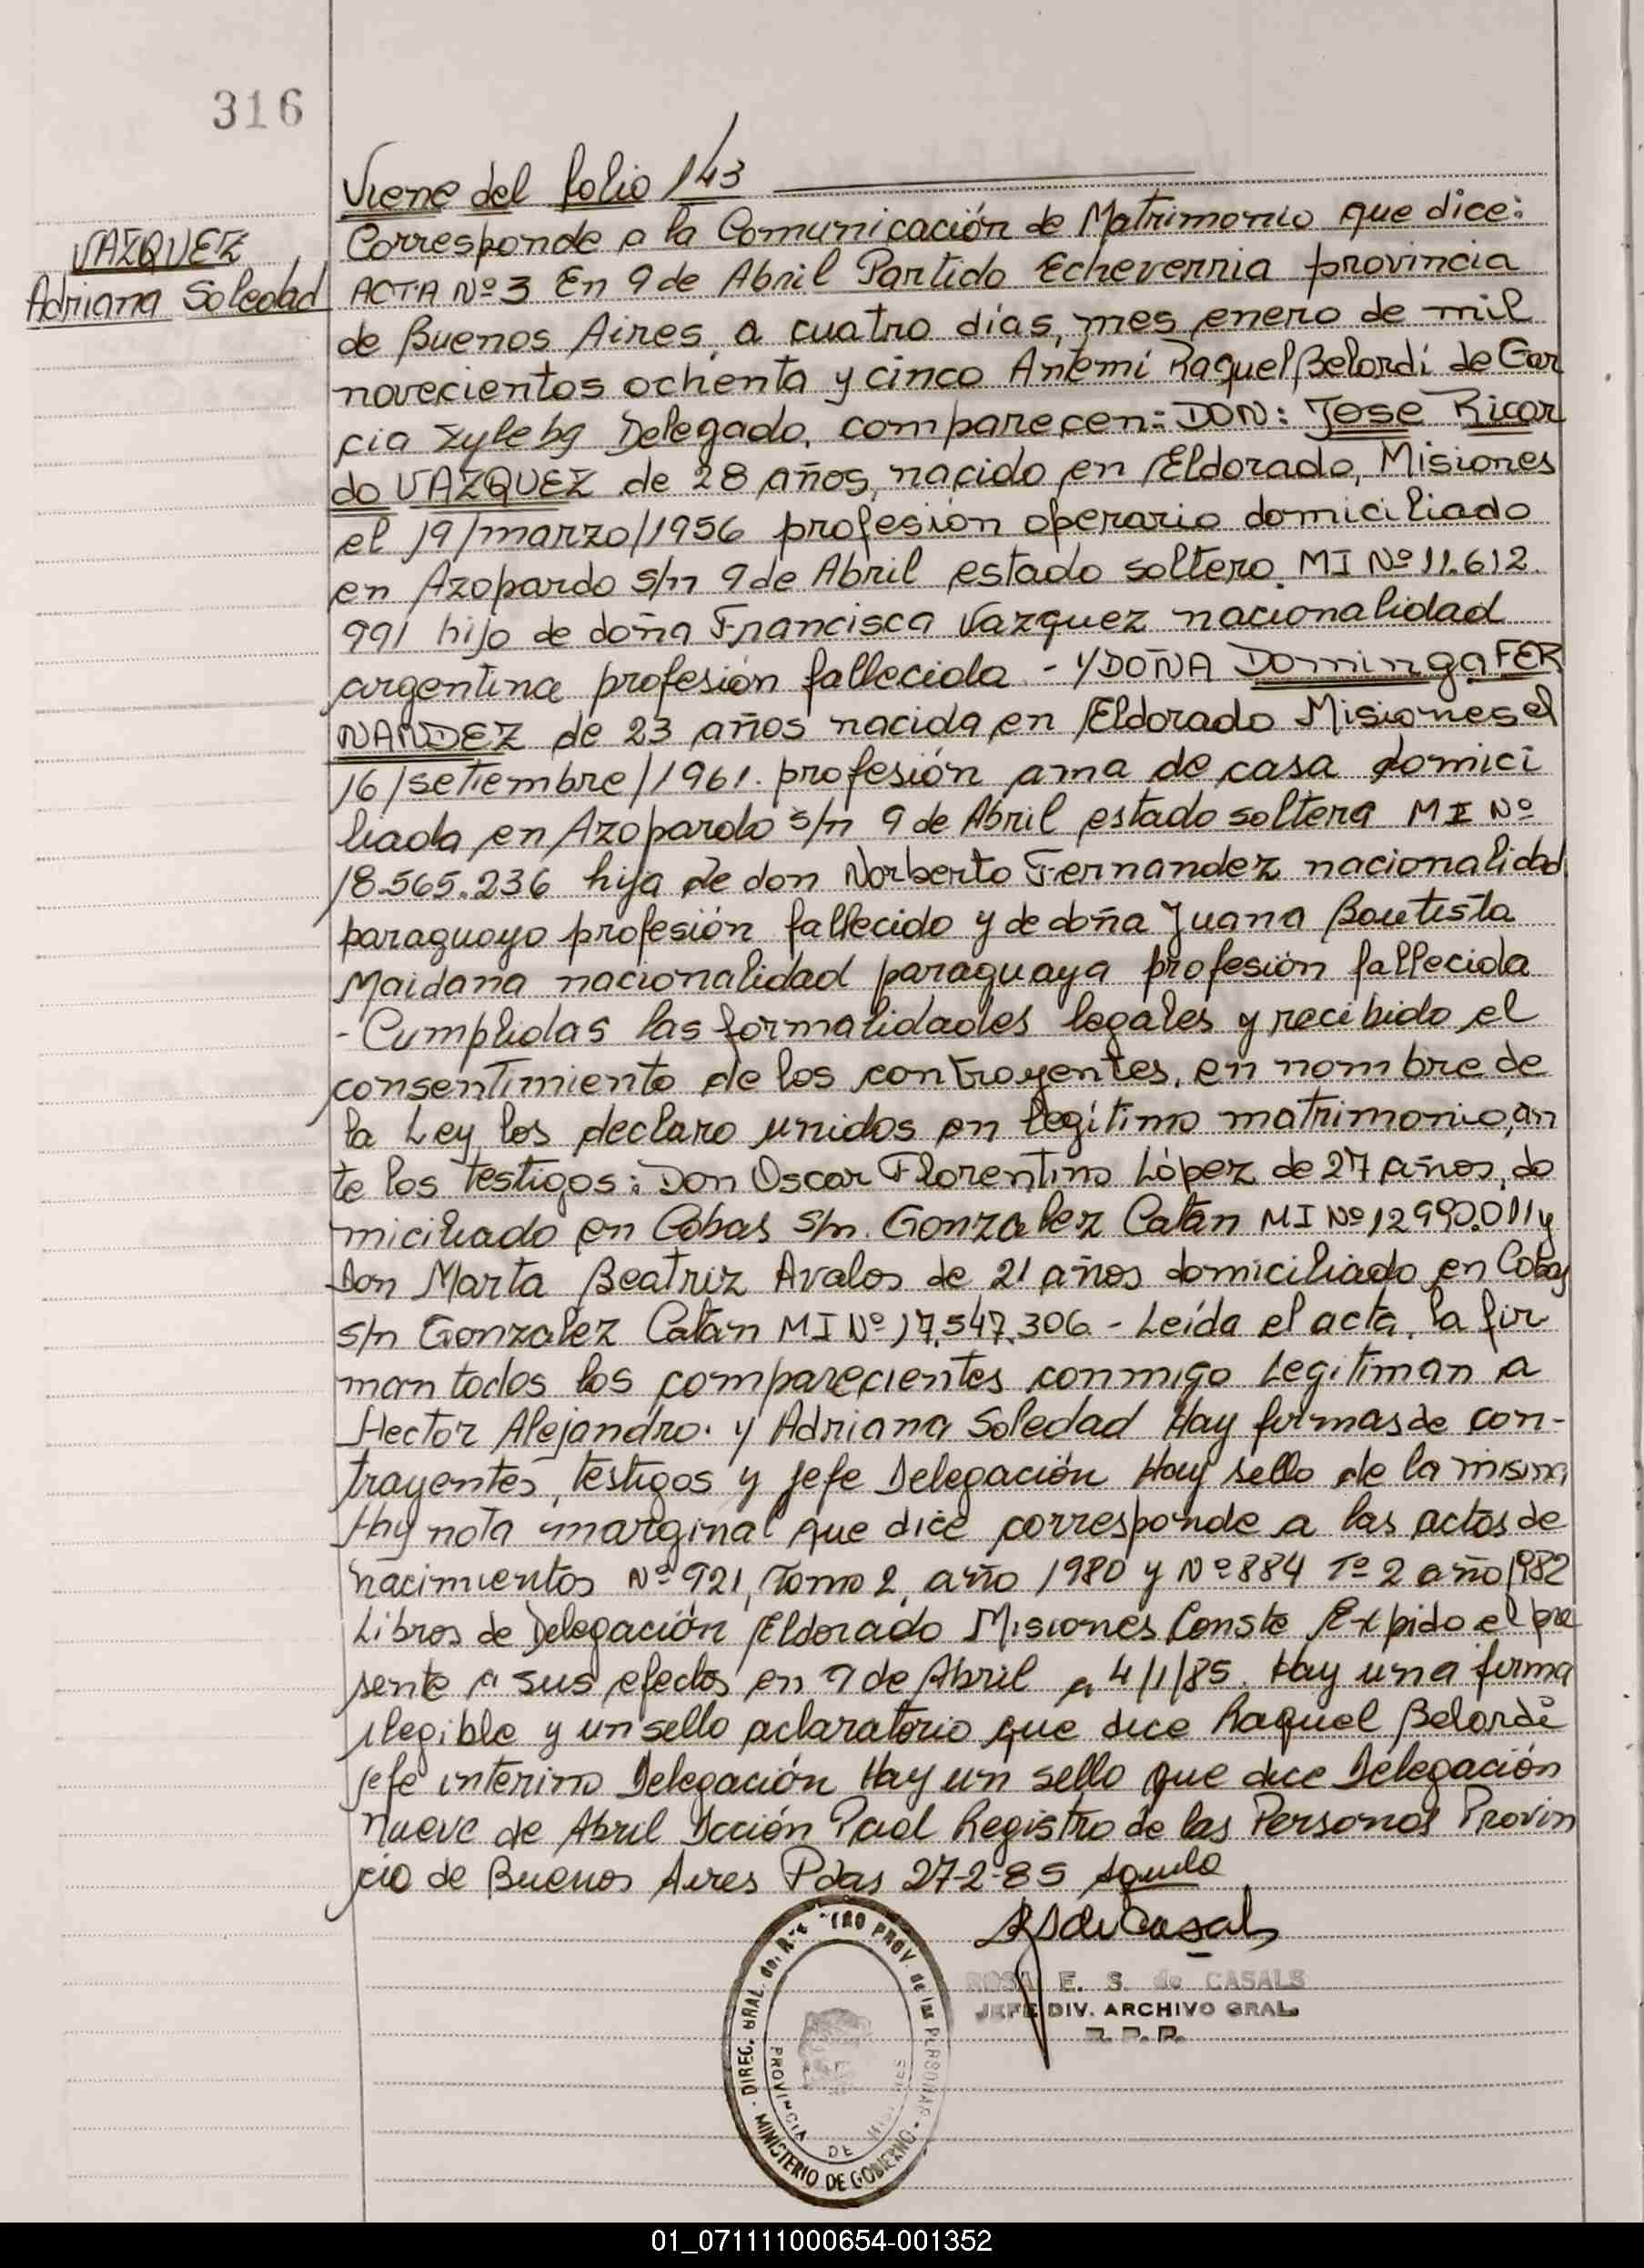 316
Viene del folio 143
VAZQUEZ
Adriana Soledad
Corresponde a la Comunicación de Matrimonio que dice:
ACTA Nº 3 En 9 de Abril Partido Echeverria provincia
de Buenos Aires, a cuatro días, mes enero de mil
novecientos ochenta y cinco Antemí Raquel Belordi de Gar
cia Delegado, comparecen: DON: Jose Ricar
do VAZQUEZ de 28 años, nacido en Eldorado, Misiones
el 19/marzo/1956 profesión operario domiciliado
en Azopardo s/n 9 de Abril estado soltero MI Nº 11.612.
991 hijo de doña Francisca Vazquez nacionalidad
argentina profesión fallecida - Y DOÑA Dominga FER
NANDEZ de 23 años nacida en Eldorado Misiones el
16/setiembre/1961. profesión ama de casa domici
liada en Azopardo s/n 9 de Abril estado soltera MI Nº
18.565.236 hija de don Norberto Fernandez nacionalidad
paraguayo profesión fallecido y de doña Juana Bautista
Maidana nacionalidad paraguaya profesión fallecida
- Cumplidas las formalidades legales y recibido el
consentimiento de los contrayentes, en nombre de
la Ley los declaro unidos en legítimo matrimonio, an
te los testigos: Don Oscar Florentino López de 27 años, do
miciliado en Cobas s/n. Gonzalez Catán MI Nº 12990.011 y
Don Marta Beatriz Avalos de 21 años domiciliado en Cobas
s/n Gonzalez Catán MI Nº 17.547.306 - Leída el acta, la fir
man todos los comparecientes conmigo Legitiman a
Hector Alejandro. y Adriana Soledad Hay firmas de con-
trayentes, testigos y jefe Delegación Hay sello de la misma
Hay nota marginal que dice corresponde a las actas de
nacimientos Nº 921, Tomo 2, año 1980 y Nº 884 Tº 2 año 1982
Libros de Delegación Eldorado Misiones Conste Expido el pre
sente a sus efectos en 9 de Abril a 4/1/85. Hay una firma
ilegible y un sello aclaratorio que dice Raquel Belordi
jefe interino Delegación Hay un sello que dice Delegación
nueve de Abril Dcción Pcial Registro de las Personas Provin
cia de Buenos Aires Pdas 27-2-85
ROSA E. S. de CASALS
JEFE DIV. ARCHIVO GRAL
R. P. P.
DIREC. GRAL. del REGISTRO PROV. de las PERSONAS
MINISTERIO DE GOBIERNO
PROVINCIA DE MISIONES
01_071111000654-001352